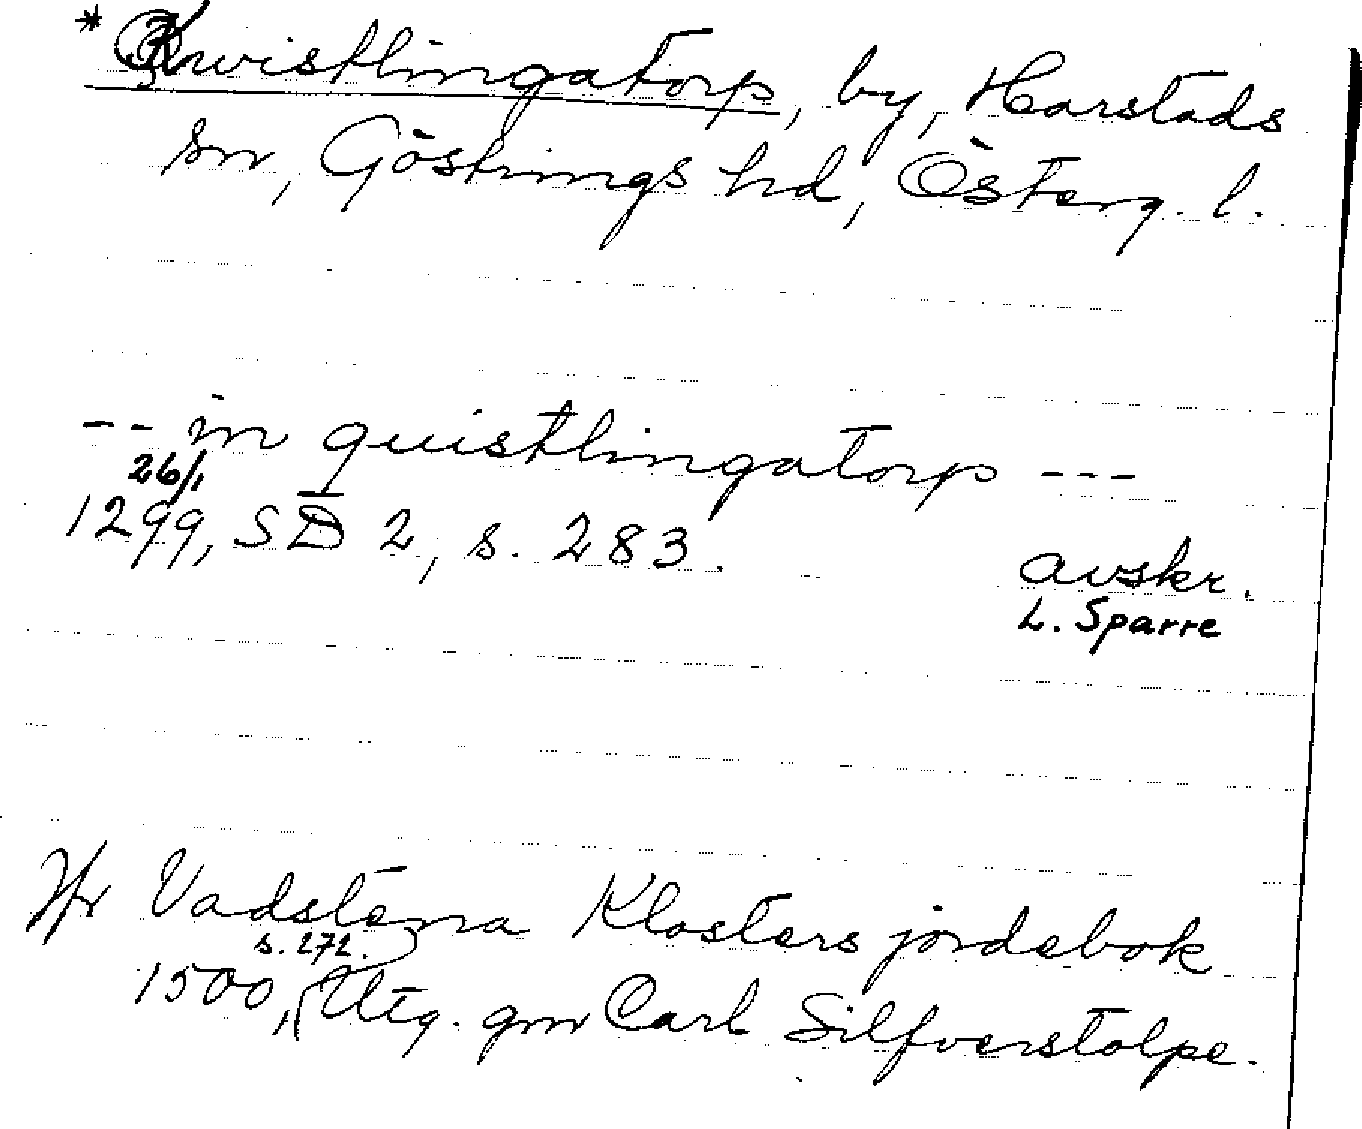 * Kvistlingatorp, by, Harstads
sn, Göstrings hd, Österg. l.
-- in quistlingatorp ---
26/1
1299, SD 2, s. 283.
avskr.
L. Sparre
Jfr Vadstena Klosters jordebok
s. 272.
1500, Utg. gm Carl Silfverstolpe.